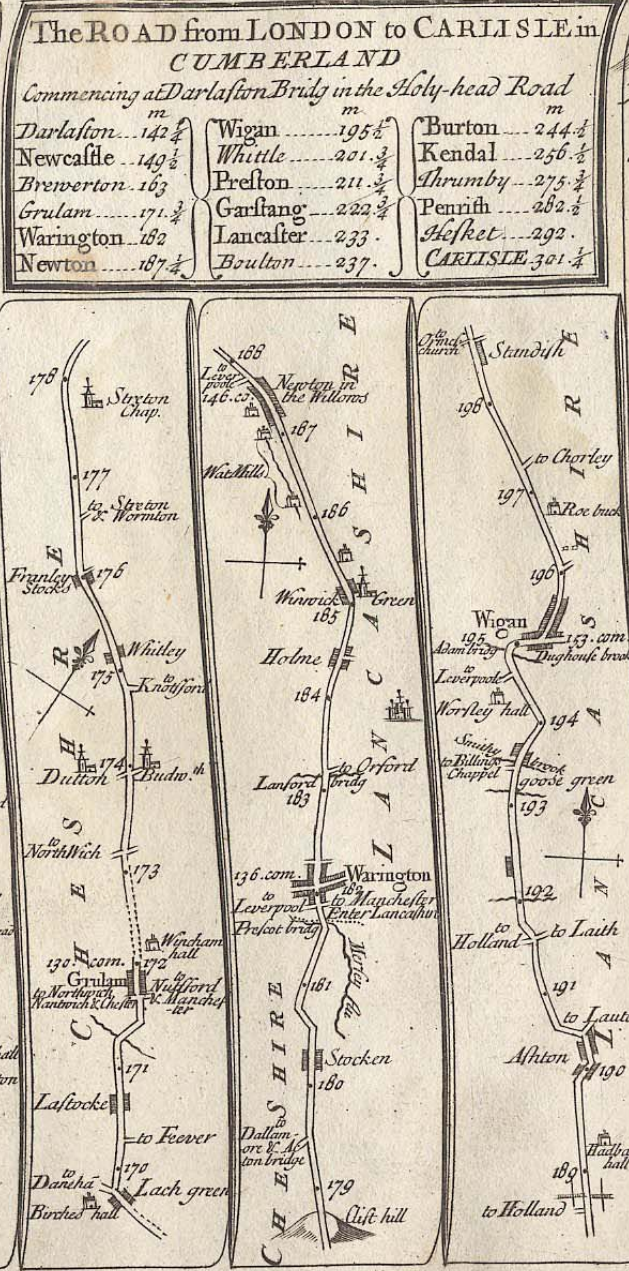 The ROAD from LONDON to CARLISLE in
CUMBERLAND
Commencing at Darlaston Bridg in the Holy-head Road
m m m
Darlaston 142 1/4
Newcastle 149 1/2
Brewerton 163
Grulam 171 3/4
Warington 182
Newton 187 1/4
Wigan 195 1/2
Whittle 201 3/4
Preston 211 3/4
Garstang 222 3/4
Lancaster 233
Boulton 237
Burton 244 1/2
Kendal 256 1/2
Thrumby 275 3/4
Penrith 282 1/2
Hesket 292
CARLISLE 301 1/4
178
Streton
Chap.
177
to Streton
& Wormton
Franley
Stocks
176
Whitley
175
to
Knotsford
174
Dutton
Budw.th
to
NorthWich
173
Wincham
hall
130. com.
172
Grulam
to Northwich
Nantwich & Chester
to
Nutsford
& Manches
ter
171
Lastocke
to Feever
170
to
Daneha
Lach green
Birches hall
CHESHIRE
188
to
Lever
poole
146. co.
Newton in
the Willows
187
Wat Mills
186
Winwick
Green
185
Holme
184
to Orford
Lanford
bridg
183
136. com.
Warington
182
to
Leverpool
to Manchester
Enter Lancashire
Prescot bridg
Mersey flu
181
Stocken
180
to
Dallam
ore & Ac
ton bridge
179
Clift hill
CHESHIRE
LANCASHIRE
to
Ormes
church
Standish
198
to Chorley
197
Roe buck
196
Wigan
195
153. com.
Adam bridg
Dughouse brook
to
Leverpoole
Worsley hall
194
Smithy
brook
to Billings
Chappel
goose green
193
192
to
Holland
to Laith
191
to Lauto
Ashton
190
hall
189
to Holland
LANCASHIRE